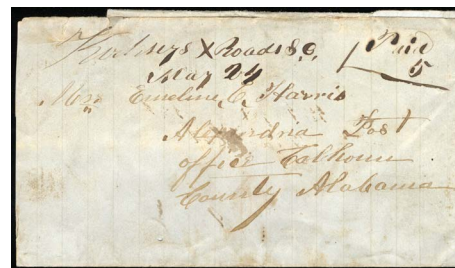 X Roads S.C. Paid
May 24 5
Mrs Emeline C. Harris
Alexandria Post
office Calhoun
County Alabama